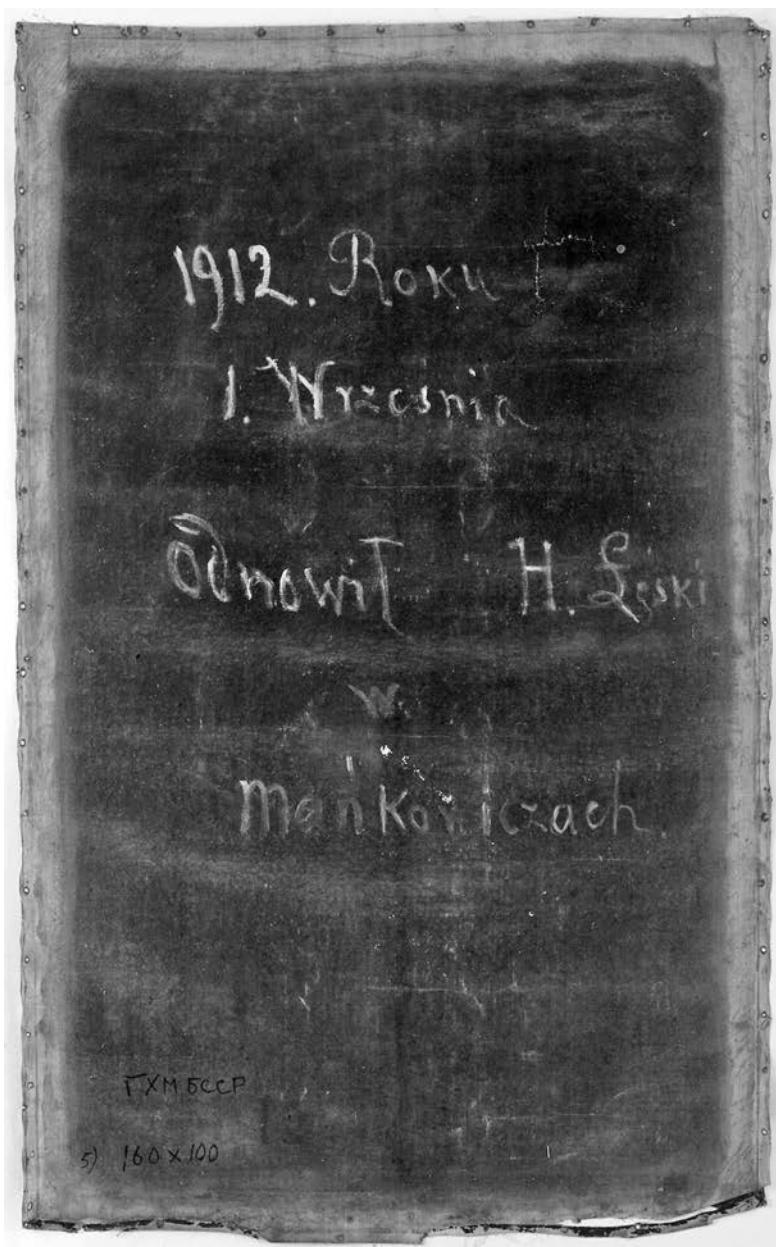 1912. Roku
1. Września
Odnowił H. Łęski
w.
Mańkowiczach.
ГХМ БССР
5) 160 x 100